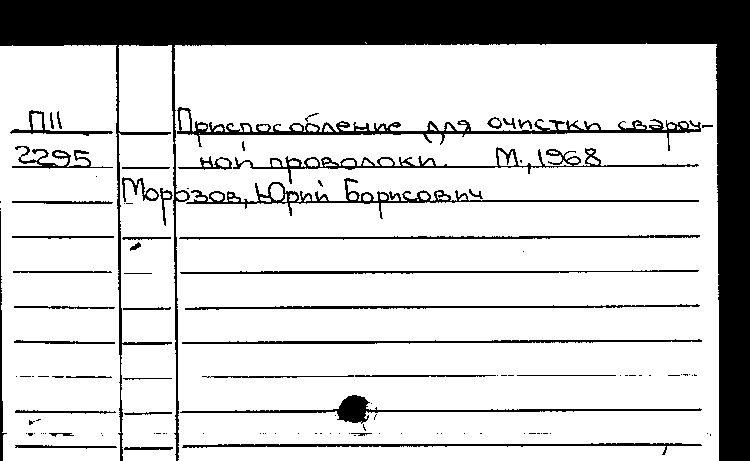 П11 Приспособление для очистки свароч-
2295 ной проволоки. М., 1968
Морозов, Юрий Борисович